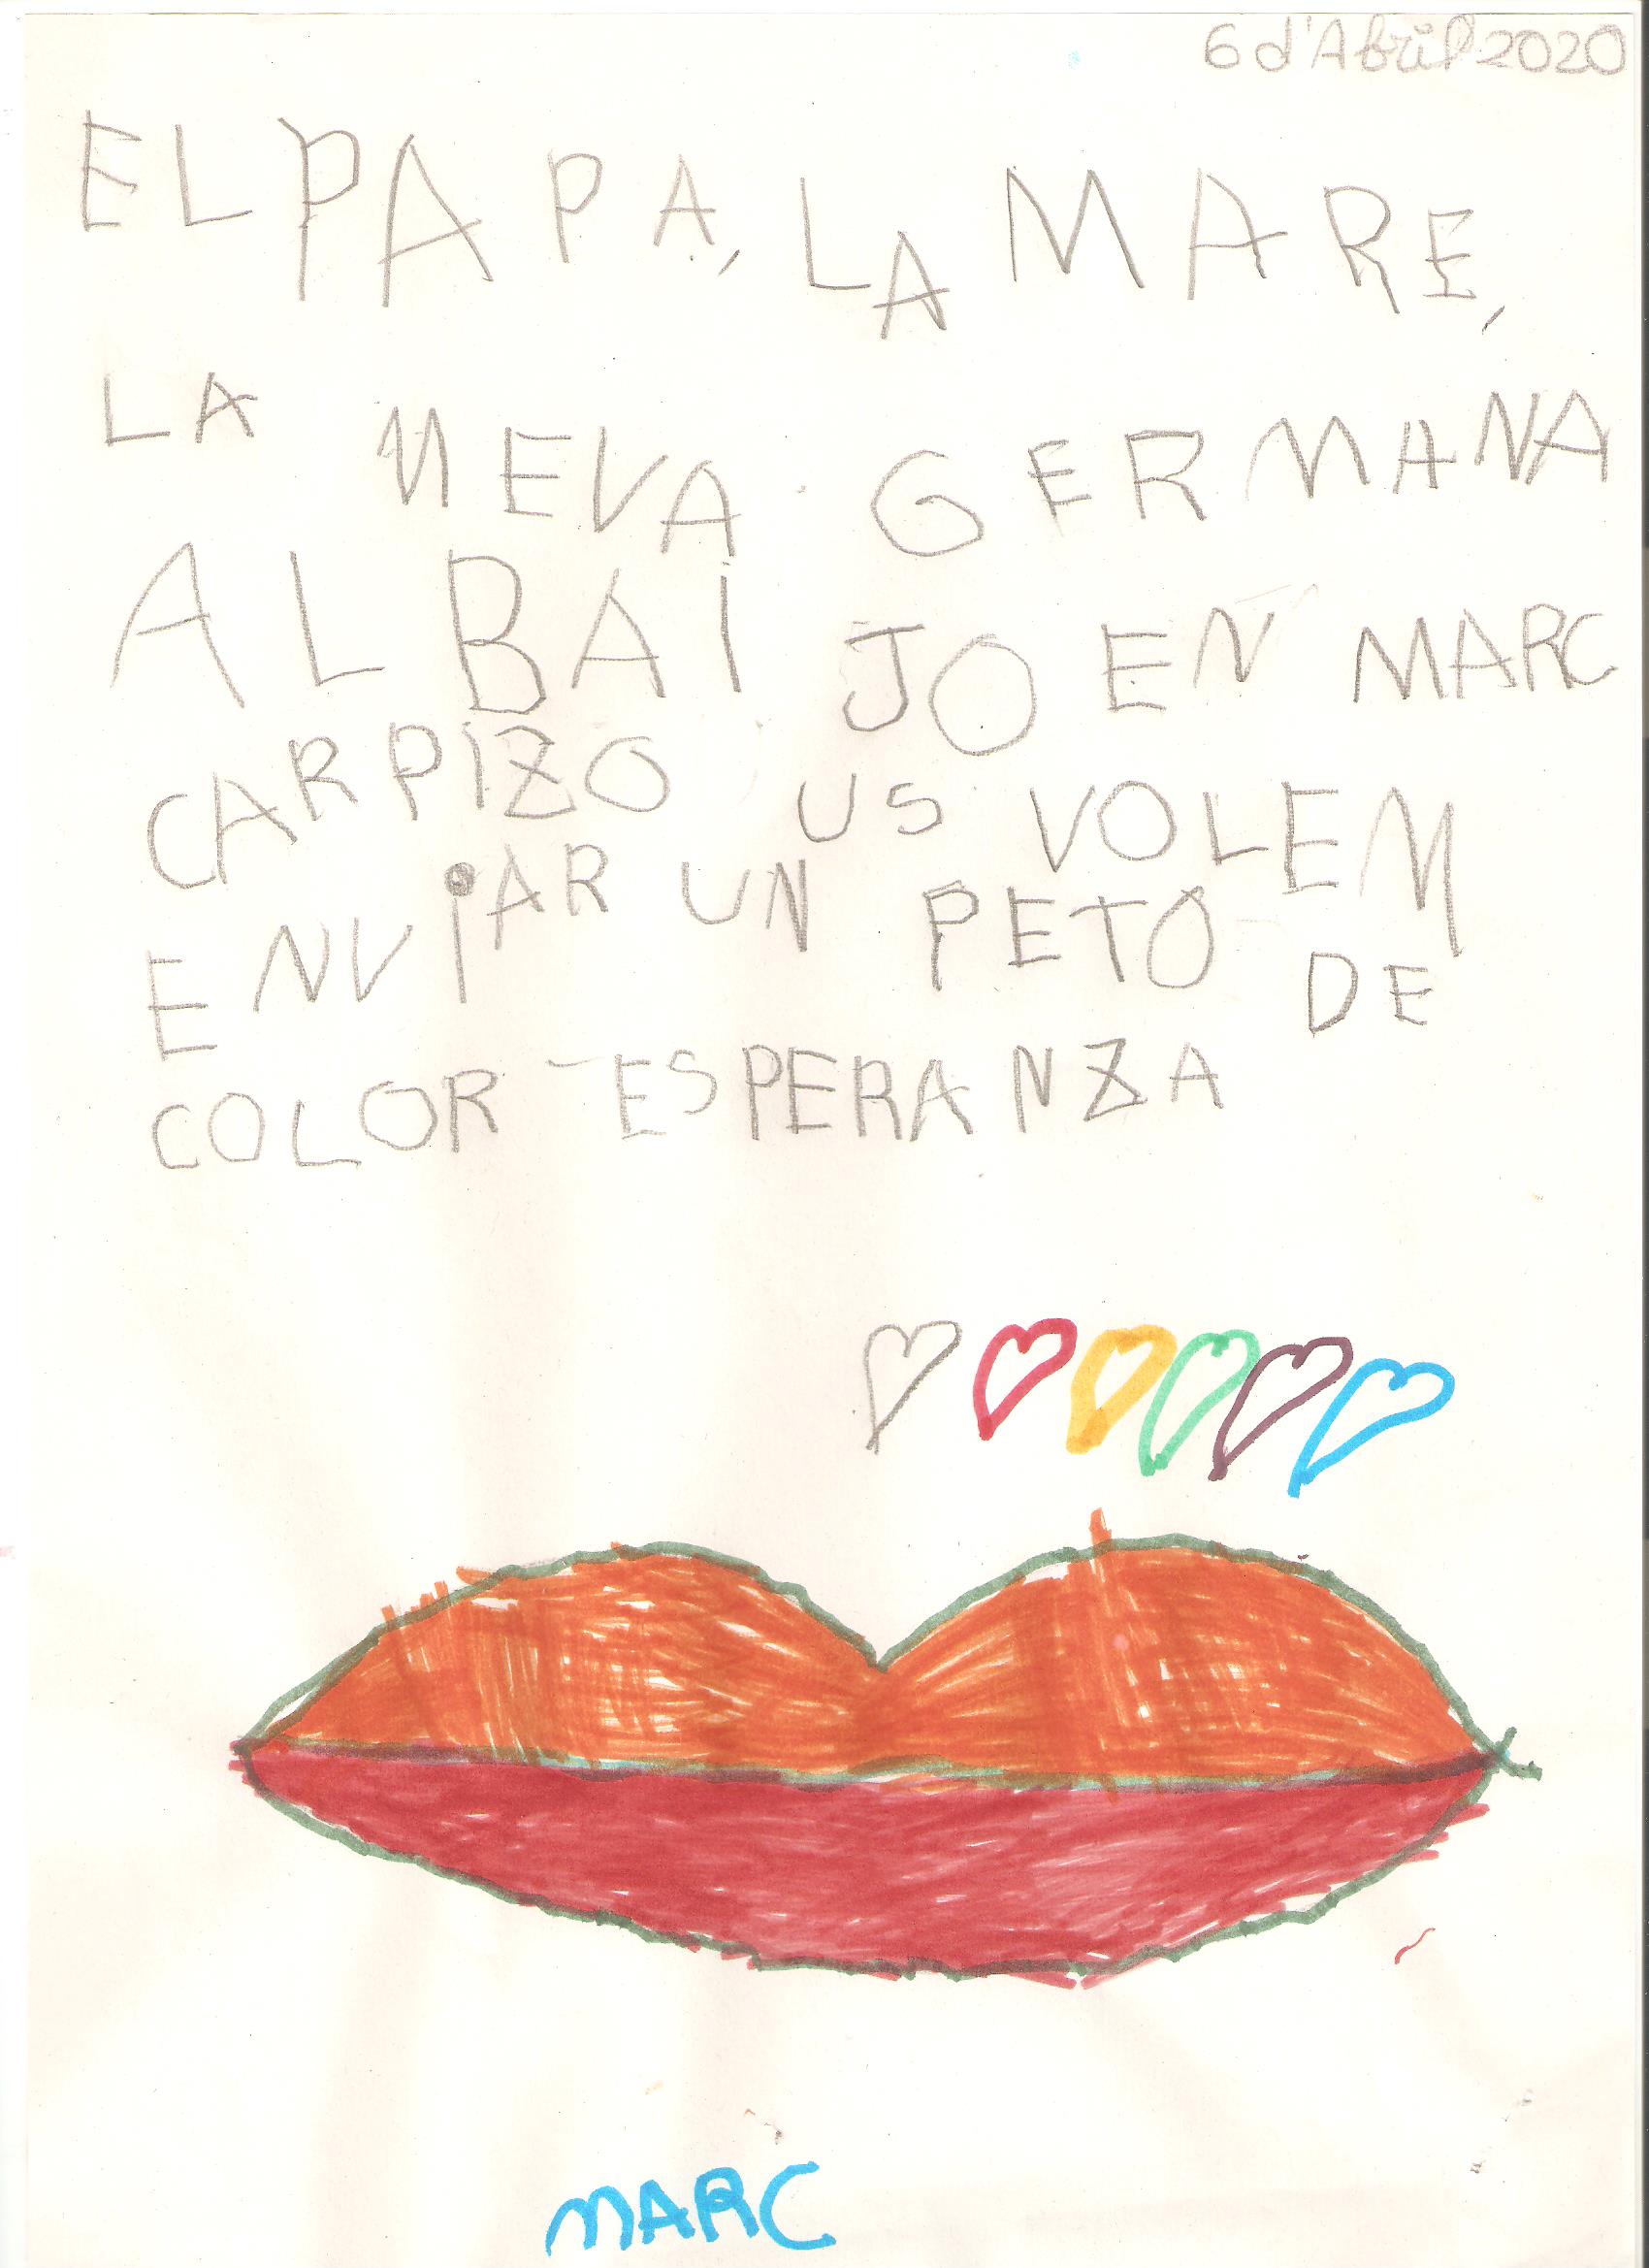 6 d'Abril 2020
EL PAPA, LA MARE,
LA MEVA GERMANA
ALBA I JO EN MARC
CARPIZO US VOLEM
ENVIAR UN PETO DE
COLOR ESPERANZA
MARC